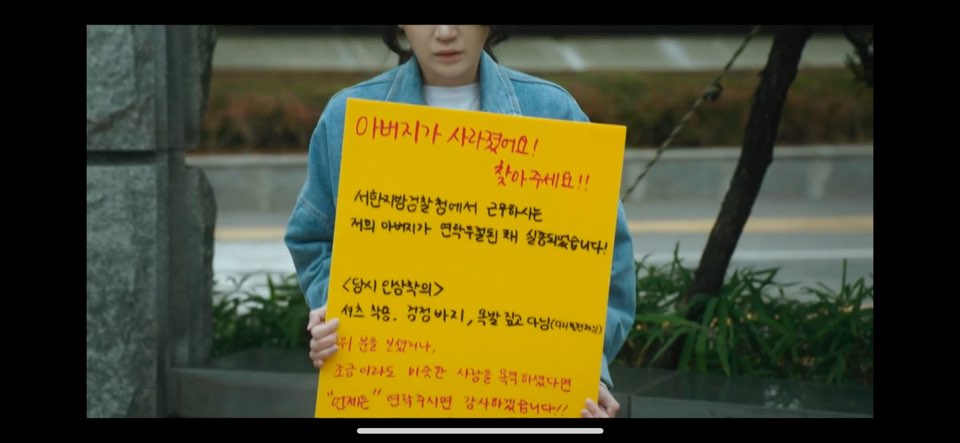 아버지가 사라졌어요!
찾아주세요!!
서한지방검찰청에서 근무하시는
저희 아버지가 연락두절된 채 실종되었습니다!
<당시 인상착의>
셔츠 착용. 검정 바지, 목발 짚고 다님
위 분을 보셨거나,
조금이라도 비슷한 사람을 목격하셨다면
"언제든" 연락주시면 감사하겠습니다!!